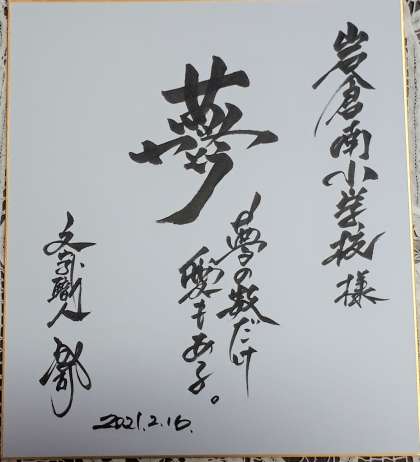 岩倉南小学校様
夢
夢の数だけ
愛もある。
文字職人
2021.2.16.